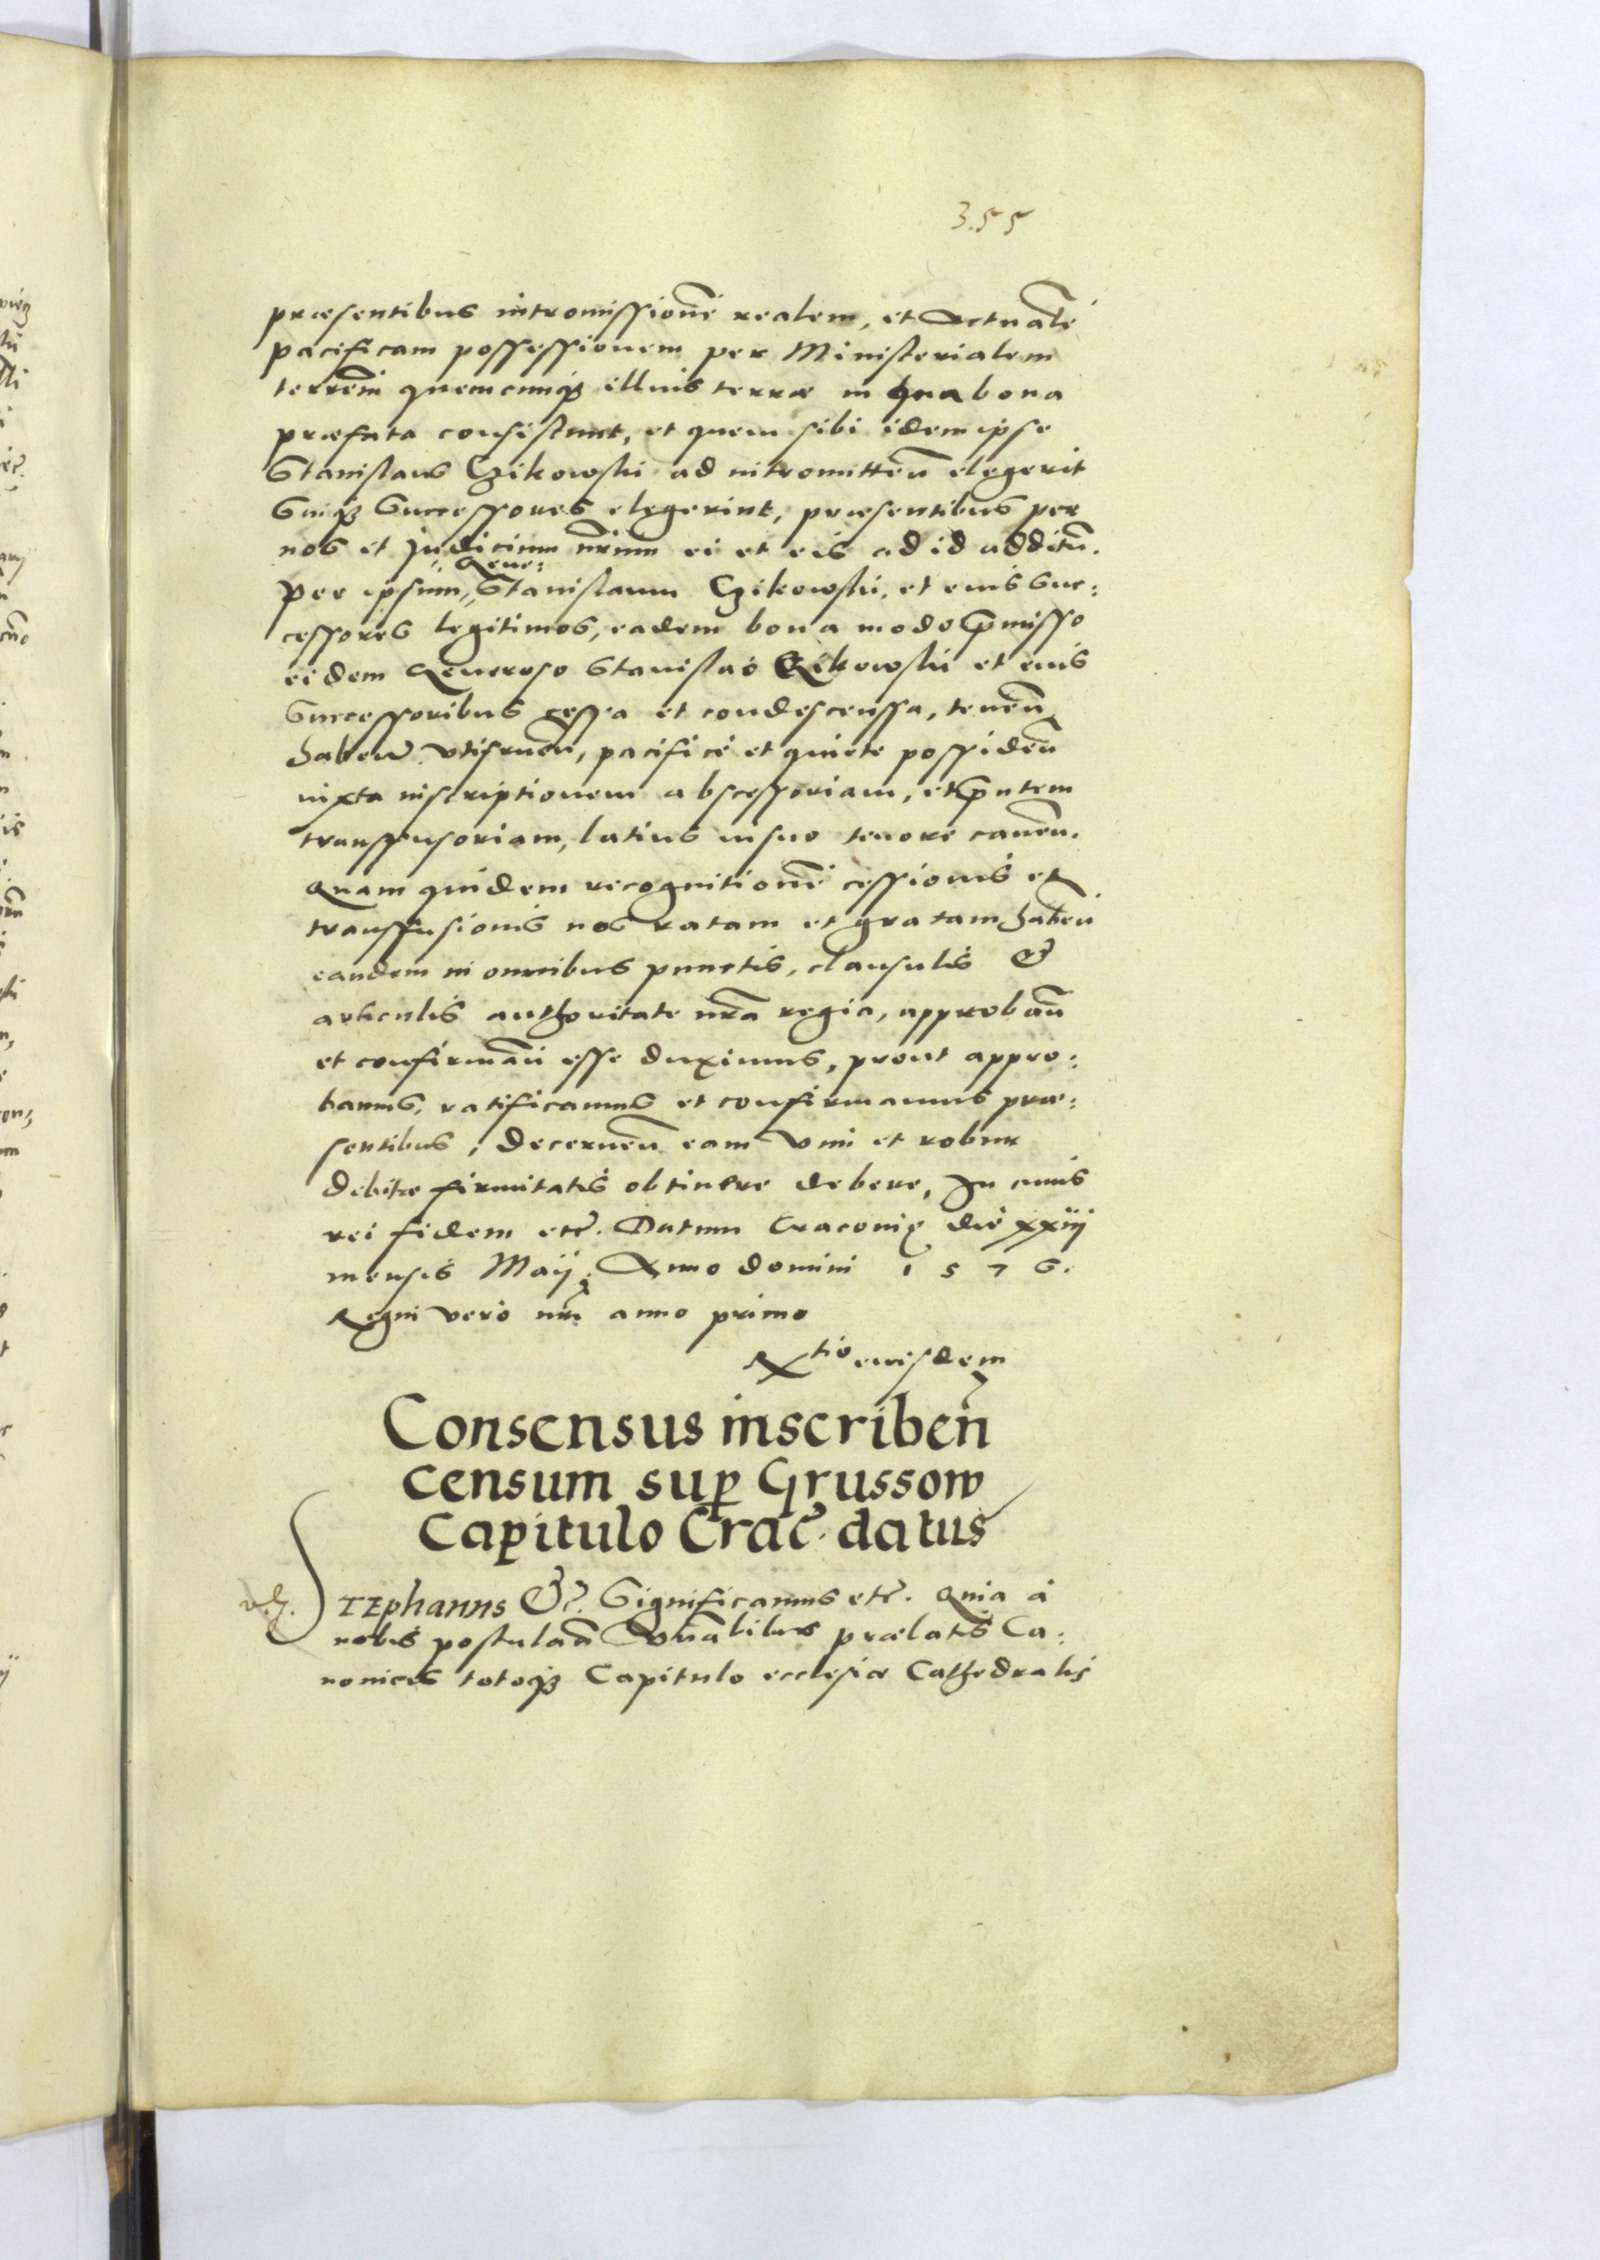 355
præsentibus intromissionē realem, et Actualē
pacificam possessionem per Ministerialem
terrēm quemcunqꝫ illius terræ in qua bona
præfata consistunt, et quem sibi idem ipse
Stanislaus Czikowski ad intromitteñ elegerit
Suiqꝫ Successores elegerint, præsentibus per
nos et Judicium nrūm ei et eis ad id additū.
Gene:
per ipsum Stanislaum Czikowski, et eius Suc:
cessores legitimos, eadem bona modo p̄misso
eidem Generoso Stanislao Czikowski et eius
Successoribus cessa et condescenssa, teneñ
habeñ utifrueñ, pacificè et quiete possideñ
iuxta inscriptionem abscessoriam, et p̄ntem
transfusoriam, latius in suo tenore caneñ.
Quam quidem recognitionē cessionis et
transfusionis nos ratam et gratam habeñ
eandem in omnibus punctis, clausulis &
articulis authoritate nr̄a regia, approbañ
et confirmañ esse duximus, prout appro:
bamus, ratificamus et confirmamus præ:
sentibus, decerneñ eam vim et robur
debitæ firmitatis obtinere debere, In cuius
rei fidem etc̃. Datum Cracouię die xxiij
mensis Maij Anno domini 1576.
Regni vero nrī anno primo
Rtio eiusdem
Consensus inscribeñ
censum sup̱ Grussow
Capitulo Crac̃. datus
STEphanus &c̃. Significamus etc̃. Quia à
nobis postulañ Vēnabilibus prælatis Ca:
nonicis totoqꝫ Capitulo ecclesiæ Cathedralis